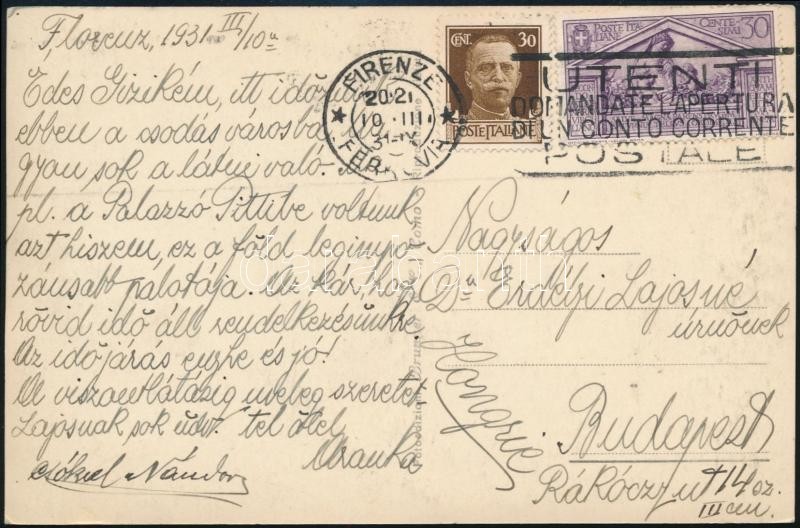 Florenz, 1931 III/10.
Édes Gizikém, itt időz
ebben a csodás városba
gyon sok a látni való.
pl. a Palazzó Pittibe voltunk
azt hiszem, ez a föld legimpo
zánsabb palotája. Az kár, hog
rövid idő áll rendelkezésünkre
Az időjárás enyhe és jó!
A viszontlátásig meleg szeretet
Lajosnak sok üdv. tel ölel
Aranka
Nándor
FIRENZE
20·21
10 III
31
FERROVIA
CENT. 30
POSTE ITALIANE
POSTE ITA
LIANE
CENTE
SIMI 30
UTENTI
DOMANDATE L'APERTURA
DI UN CONTO CORRENTE
POSTALE
Nagyságos
Dr Erdélyi Lajosné
úrnőnek
Hongrie
Budapest
Rákóczi ut 14 sz.
III em.
darabanth